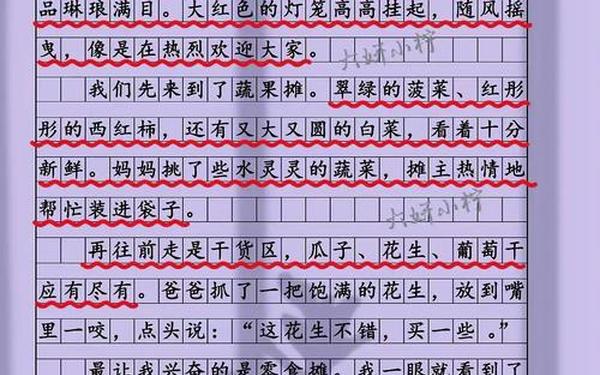 品琳琅满目。大红色的灯笼高高挂起，随风摇
曳，像是在热烈欢迎大家。
我们先来到了蔬果摊。翠绿的菠菜、红彤
彤的西红柿，还有又大又圆的白菜，看着十分
新鲜。妈妈挑了些水灵灵的蔬菜，摊主热情地
帮忙装进袋子。
再往前走是干货区，瓜子、花生、葡萄干
应有尽有。爸爸抓了一把饱满的花生，放到嘴
里一咬，点头说：“这花生不错，买一些。”
最让我兴奋的是零食摊。我一眼就看到了